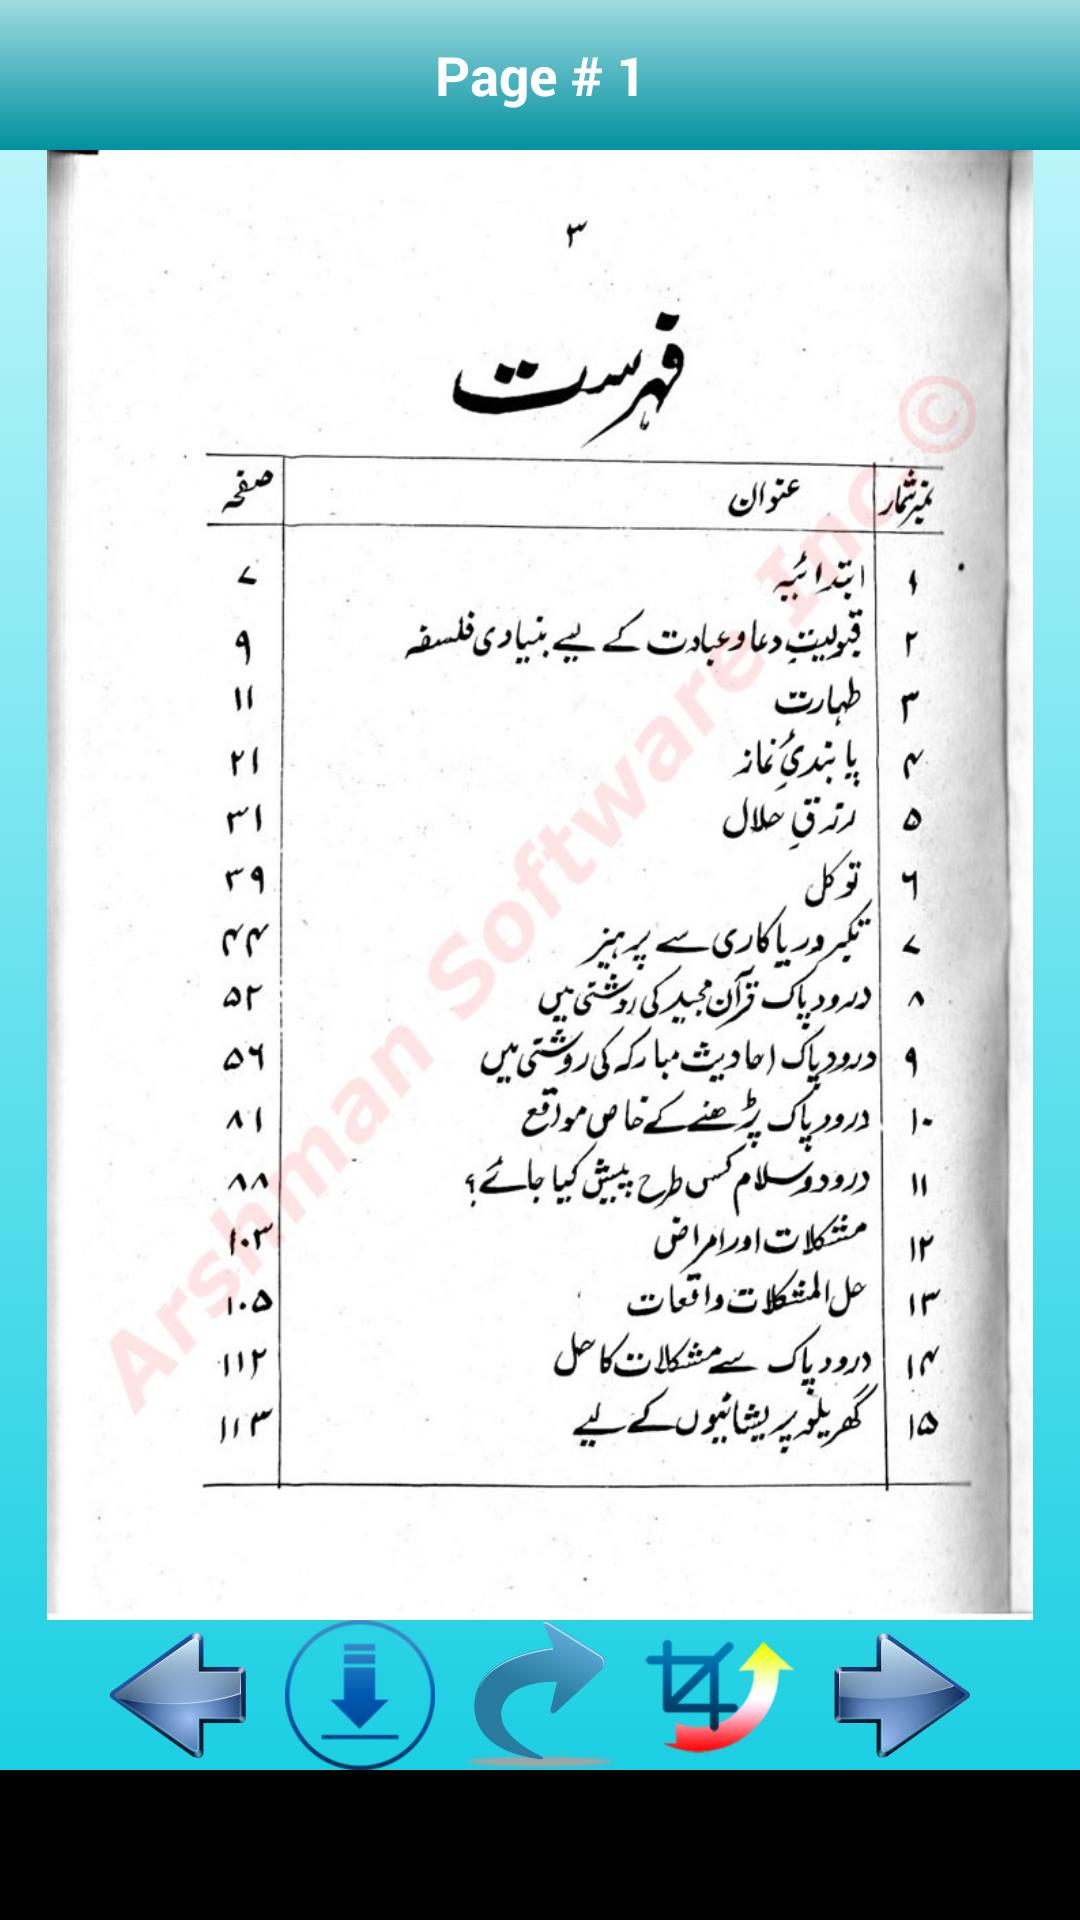 Page # 1
۳
فہرست
نمبرشمار عنوان صفحہ
۱ ابتدائیہ ۷
۲ قبولیتِ دعا و عبادت کے لیے بنیادی فلسفہ ۹
۳ طہارت ۱۱
۴ پابندیٔ نماز ۲۱
۵ رزقِ حلال ۳۱
۶ توکل ۳۹
۷ تکبر و ریاکاری سے پرہیز ۴۴
۸ درود پاک قرآن مجید کی روشنی میں ۵۲
۹ درود پاک احادیث مبارکہ کی روشنی میں ۵۶
۱۰ درود پاک پڑھنے کے خاص مواقع ۸۱
۱۱ درود و سلام کس طرح پیش کیا جائے؟ ۸۸
۱۲ مشکلات اور امراض ۱۰۳
۱۳ حل المشکلات واقعات ۱۰۵
۱۴ درود پاک سے مشکلات کا حل ۱۱۲
۱۵ گھریلو پریشانیوں کے لیے ۱۱۳
Arshman Software Inc. ©